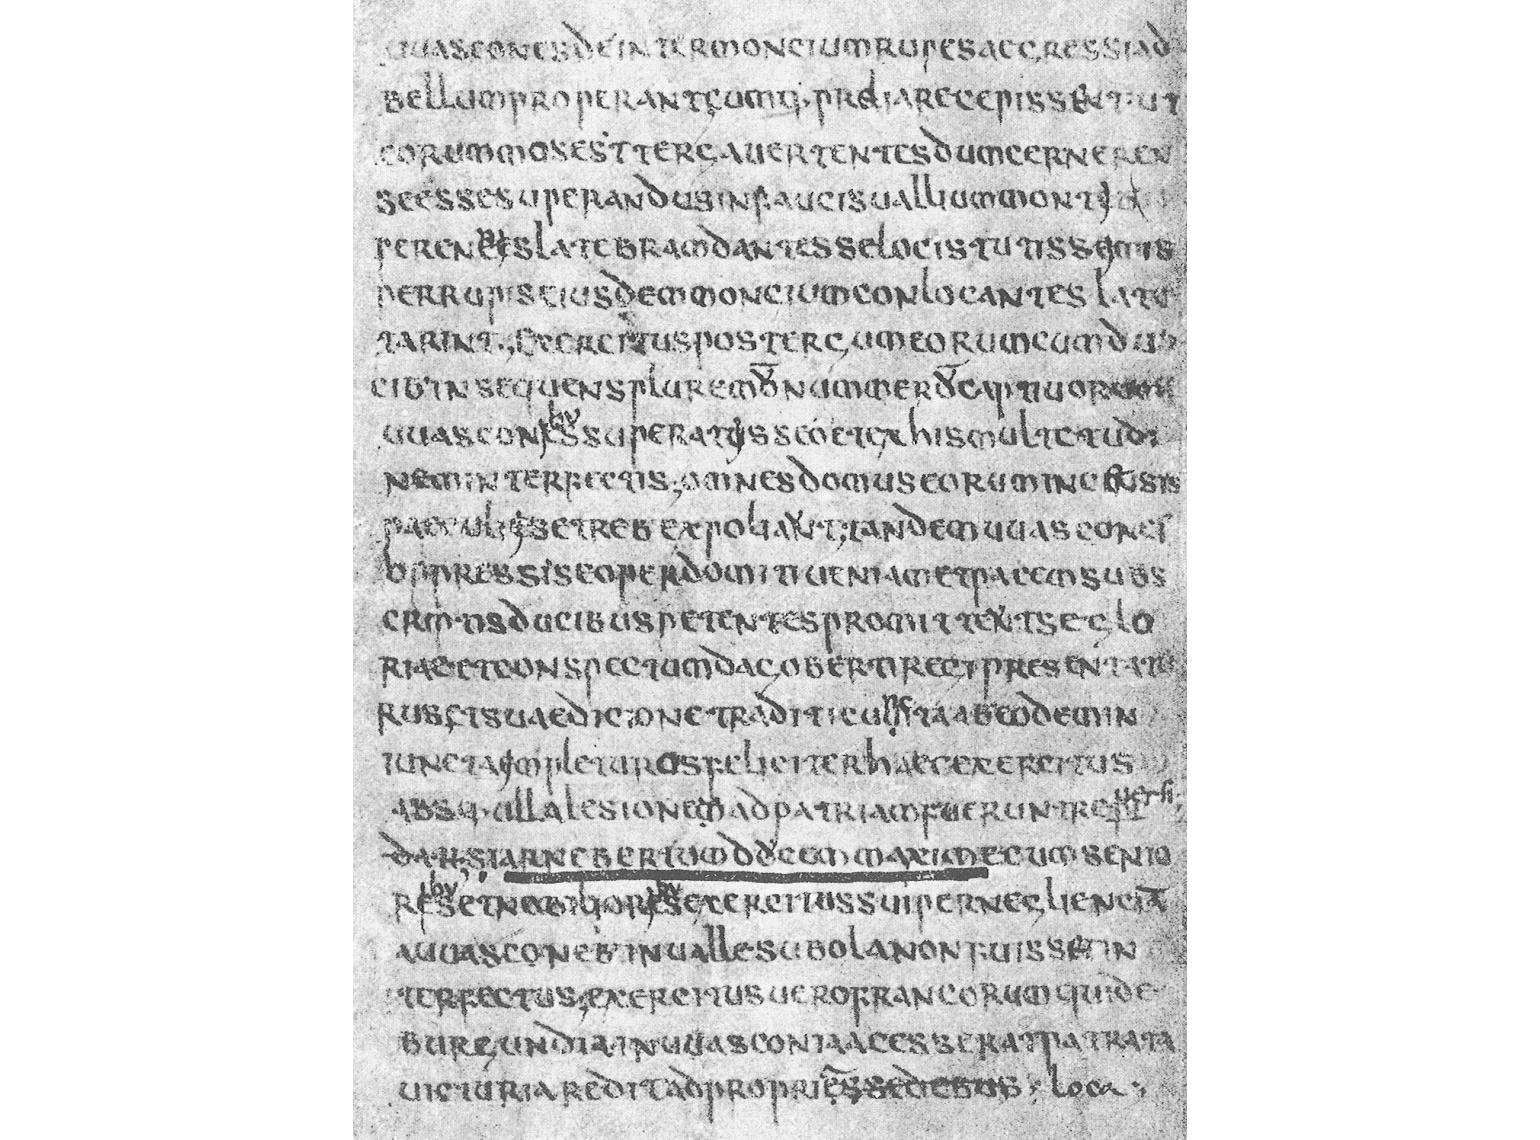 uuascones deinter moncium rupes aegressi ad
bellum properant cumq· prelia recepissent ut
eorum mos est terga uertentes dum cernerent
se esse superandus in faucis uallium montis
latebram dantes se locis tutissemis
per rupis eiusdem moncium conlocantes late
tarint· exercitus post tergum eorum cum du
cib' insequens plure nummero captiuorum
uuascones superatus seo et ex his multetudi
nem interfectis· omnes domus eorum incensis
paeculies et reb expoliaut; tandem uuascones
oppressi seo perdomiti ueniam et pacem subs
criptis ducibus petentes promittent se glo
riae et conspectum dagoberti regi presentatu
rus et suae dicione traditi cunta ab eodem in
iuncta impleturos feliciter haec exercitus
absq· ulla lesionem ad patriam fuerunt repuersi
dar si arnebertum docem maxime cum senio
res et nobiliores exercitus sui per negliencia
a uuasconeb' in ualle subola non fuisset in
terfectus; exercitus uero francorum qui de
burgundia in uuasconia accesserat patrata
uicturia redit ad propries sedebus; loca;